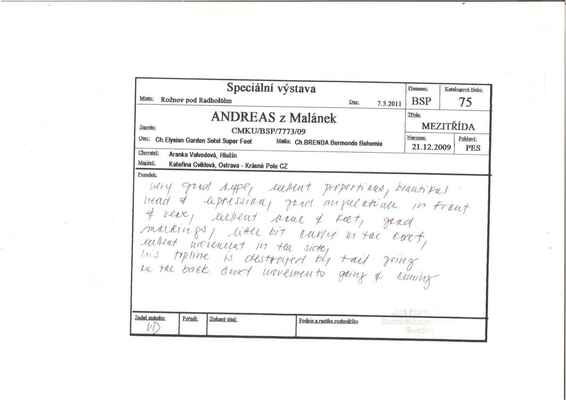 Speciální výstava
Plemeno: Katalogové číslo:
Místo: Rožnov pod Radhoštěm Dne: 7.5.2011 BSP 75
ANDREAS z Malánek Třída:
CMKU/BSP/7773/09 MEZITŘÍDA
Otec: Ch.Elysian Garden Sotsi Super Feet Matka: Ch.BRENDA Bermondo Bohemia Narozen: Pohlaví:
21.12.2009 PES
Chovatel: Aranka Valvodová, Hlučín
Majitel: Kateřina Cviklová, Ostrava - Krásné Pole CZ
Posudek:
very good type, exelent proportions, beautiful
head & expression, good angulation in front
& rear, exelent bone & feet, good
markings, little bit curly in the coat,
exelent movement in the side,
his topline is destroyed by tail going
on the back and movements going &
Zadaná známka: Pořadí: Získaný titul: Podpis a razítko rozhodčího
VD